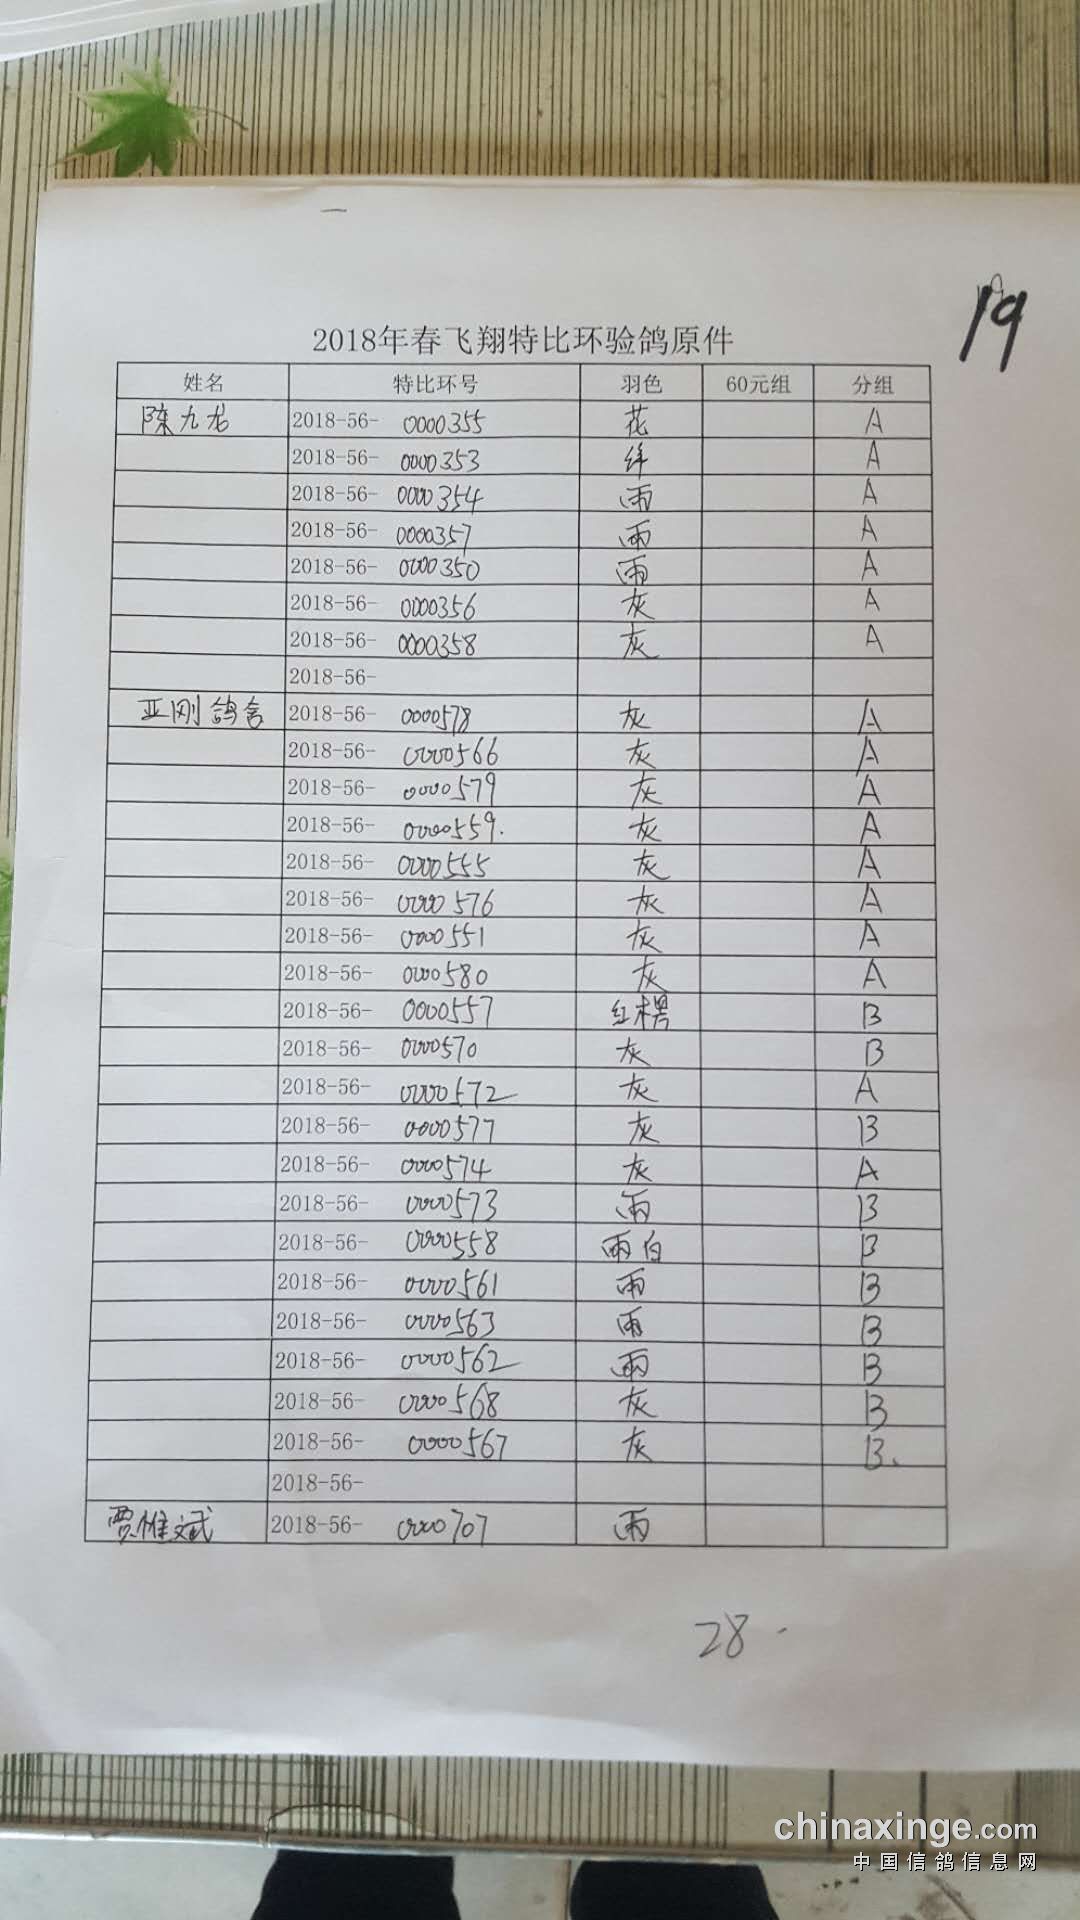 19
2018年春飞翔特比环验鸽原件
姓名 特比环号 羽色 60元组 分组
陈九龙 2018-56- 0000355 花 A
2018-56- 0000353 绛 A
2018-56- 0000354 雨 A
2018-56- 0000357 雨 A
2018-56- 0000350 雨 A
2018-56- 0000356 灰 A
2018-56- 0000358 灰 A
2018-56-
亚刚鸽舍 2018-56- 0000578 灰 A
2018-56- 0000566 灰 A
2018-56- 0000579 灰 A
2018-56- 0000559. 灰 A
2018-56- 0000555 灰 A
2018-56- 0000576 灰 A
2018-56- 0000551 灰 A
2018-56- 0000580 灰 A
2018-56- 0000557 红楞 B
2018-56- 0000570 灰 B
2018-56- 0000572 灰 A
2018-56- 0000577 灰 B
2018-56- 0000574 灰 A
2018-56- 0000573 雨 B
2018-56- 0000558 雨白 B
2018-56- 0000561 雨 B
2018-56- 0000563 雨 B
2018-56- 0000562 雨 B
2018-56- 0000568 灰 B
2018-56- 0000567 灰 B.
2018-56-
贾惟斌 2018-56- 0000707 雨
28
chinaxinge.com
中国信鸽信息网